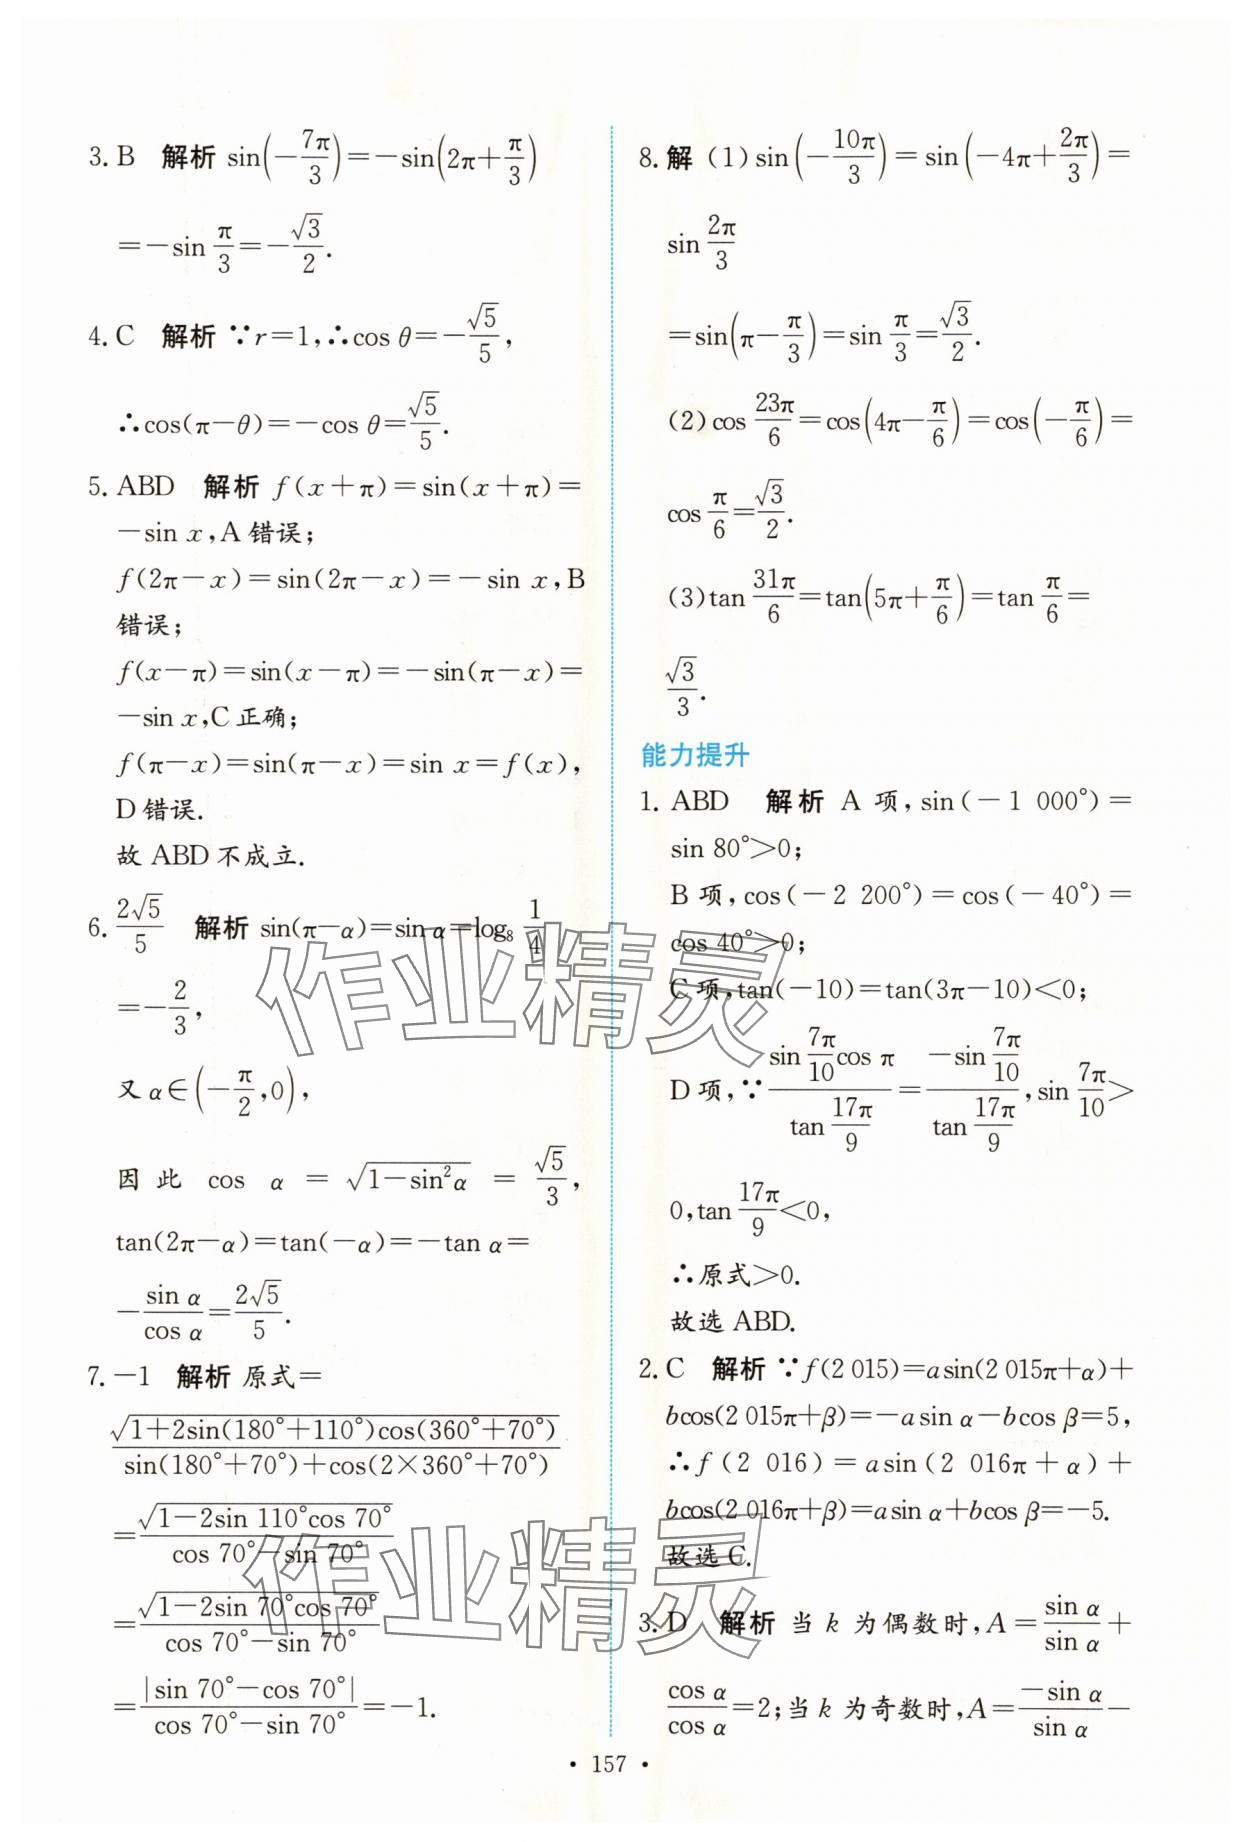 3. B 解析 sin(-7π/3)=-sin(2π+π/3)
=-sin π/3=-√3/2.
4. C 解析 ∵r=1,∴cos θ=-√5/5,
∴cos(π-θ)=-cos θ=√5/5.
5. ABD 解析 f(x+π)=sin(x+π)=
-sin x,A 错误;
f(2π-x)=sin(2π-x)=-sin x,B
错误;
f(x-π)=sin(x-π)=-sin(π-x)=
-sin x,C 正确;
f(π-x)=sin(π-x)=sin x=f(x),
D 错误.
故 ABD 不成立.
6. 2√5/5 解析 sin(π-α)=sin α=log₈ 1/4
=-2/3,
又 α∈(-π/2,0),
因此 cos α = √(1-sin²α) = √5/3,
tan(2π-α)=tan(-α)=-tan α=
-sin α/cos α=2√5/5.
7. -1 解析 原式=
√(1+2sin(180°+110°)cos(360°+70°))/(sin(180°+70°)+cos(2×360°+70°))
=√(1-2sin 110°cos 70°)/(cos 70°-sin 70°)
=√(1-2sin 70°cos 70°)/(cos 70°-sin 70°)
=|sin 70°-cos 70°|/(cos 70°-sin 70°)=-1.
8. 解 (1)sin(-10π/3)=sin(-4π+2π/3)=
sin 2π/3
=sin(π-π/3)=sin π/3=√3/2.
(2)cos 23π/6=cos(4π-π/6)=cos(-π/6)=
cos π/6=√3/2.
(3)tan 31π/6=tan(5π+π/6)=tan π/6=
√3/3.
能力提升
1. ABD 解析 A 项,sin(-1 000°)=
sin 80°>0;
B 项,cos(-2 200°)=cos(-40°)=
cos 40°>0;
C 项,tan(-10)=tan(3π-10)<0;
D 项,∵(sin 7π/10 cos π)/(tan 17π/9)=(-sin 7π/10)/(tan 17π/9),sin 7π/10>
0,tan 17π/9<0,
∴原式>0.
故选 ABD.
2. C 解析 ∵f(2 015)=asin(2 015π+α)+
bcos(2 015π+β)=-asin α-bcos β=5,
∴f(2 016)=asin(2 016π+α)+
bcos(2 016π+β)=asin α+bcos β=-5.
故选 C.
3. D 解析 当 k 为偶数时,A=sin α/sin α+
cos α/cos α=2;当 k 为奇数时,A=-sin α/sin α-
• 157 •
作业精灵
作业精灵